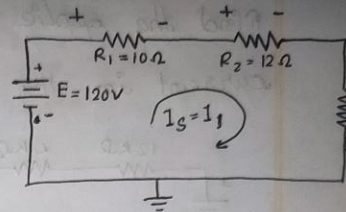 + - + -
R₁ = 10Ω
R₂ = 12Ω
+
E = 120V
-
Iₛ = I₁